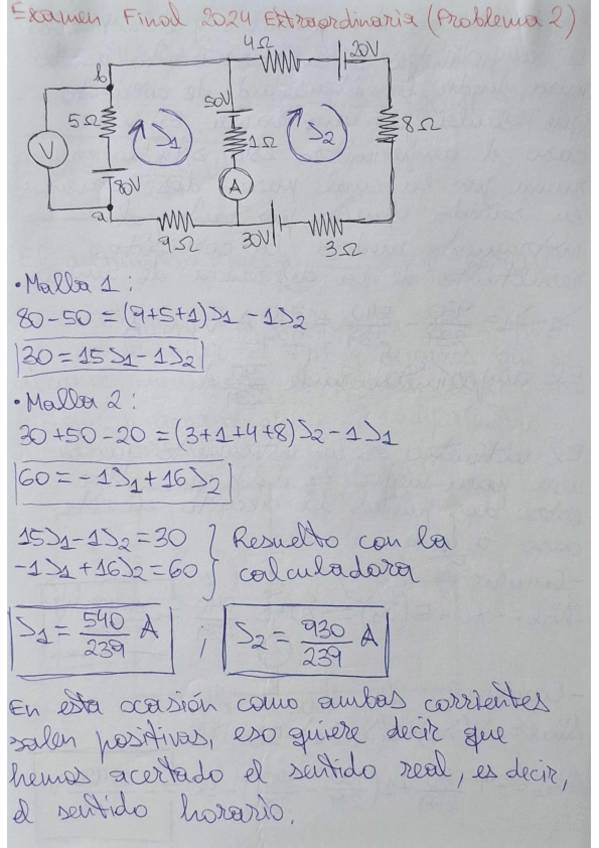 Examen Final 2024 Extraordinaria (Problema 2)
4Ω
20V
b
50V
5Ω
J1
J2
8Ω
V
1Ω
80V
A
a
9Ω
30V
3Ω
• Malla 1:
80-50 = (9+5+1)J1 - 1J2
30 = 15J1 - 1J2
• Malla 2:
30+50-20 = (3+1+4+8)J2 - 1J1
60 = -1J1 + 16J2
15J1 - 1J2 = 30 } Resuelto con la
-1J1 + 16J2 = 60 calculadora
J1 = 540/239 A ; J2 = 930/239 A
En esta ocasión como ambas corrientes
salen positivas, eso quiere decir que
hemos acertado el sentido real, es decir,
el sentido horario.